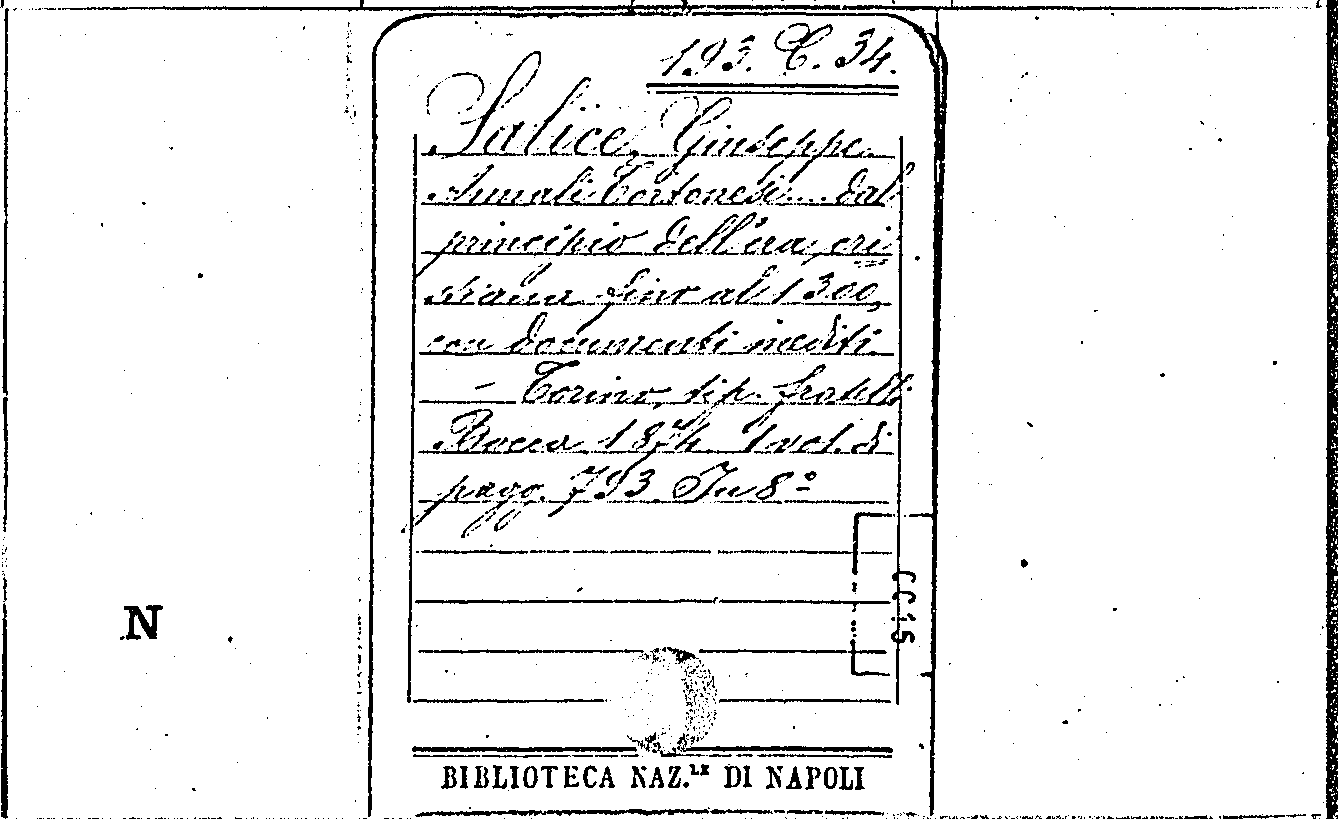 193. C. 34.
Salice, Giuseppe.
Annali Tortonesi.... dal
principio dell'era cri
stiana fino al 1300,
con documenti inediti.
- Torino, tip. fratelli
Bocca 1874. 1 vol. di
pagg. 793. In 8º
CC15
N
BIBLIOTECA NAZ.LE DI NAPOLI